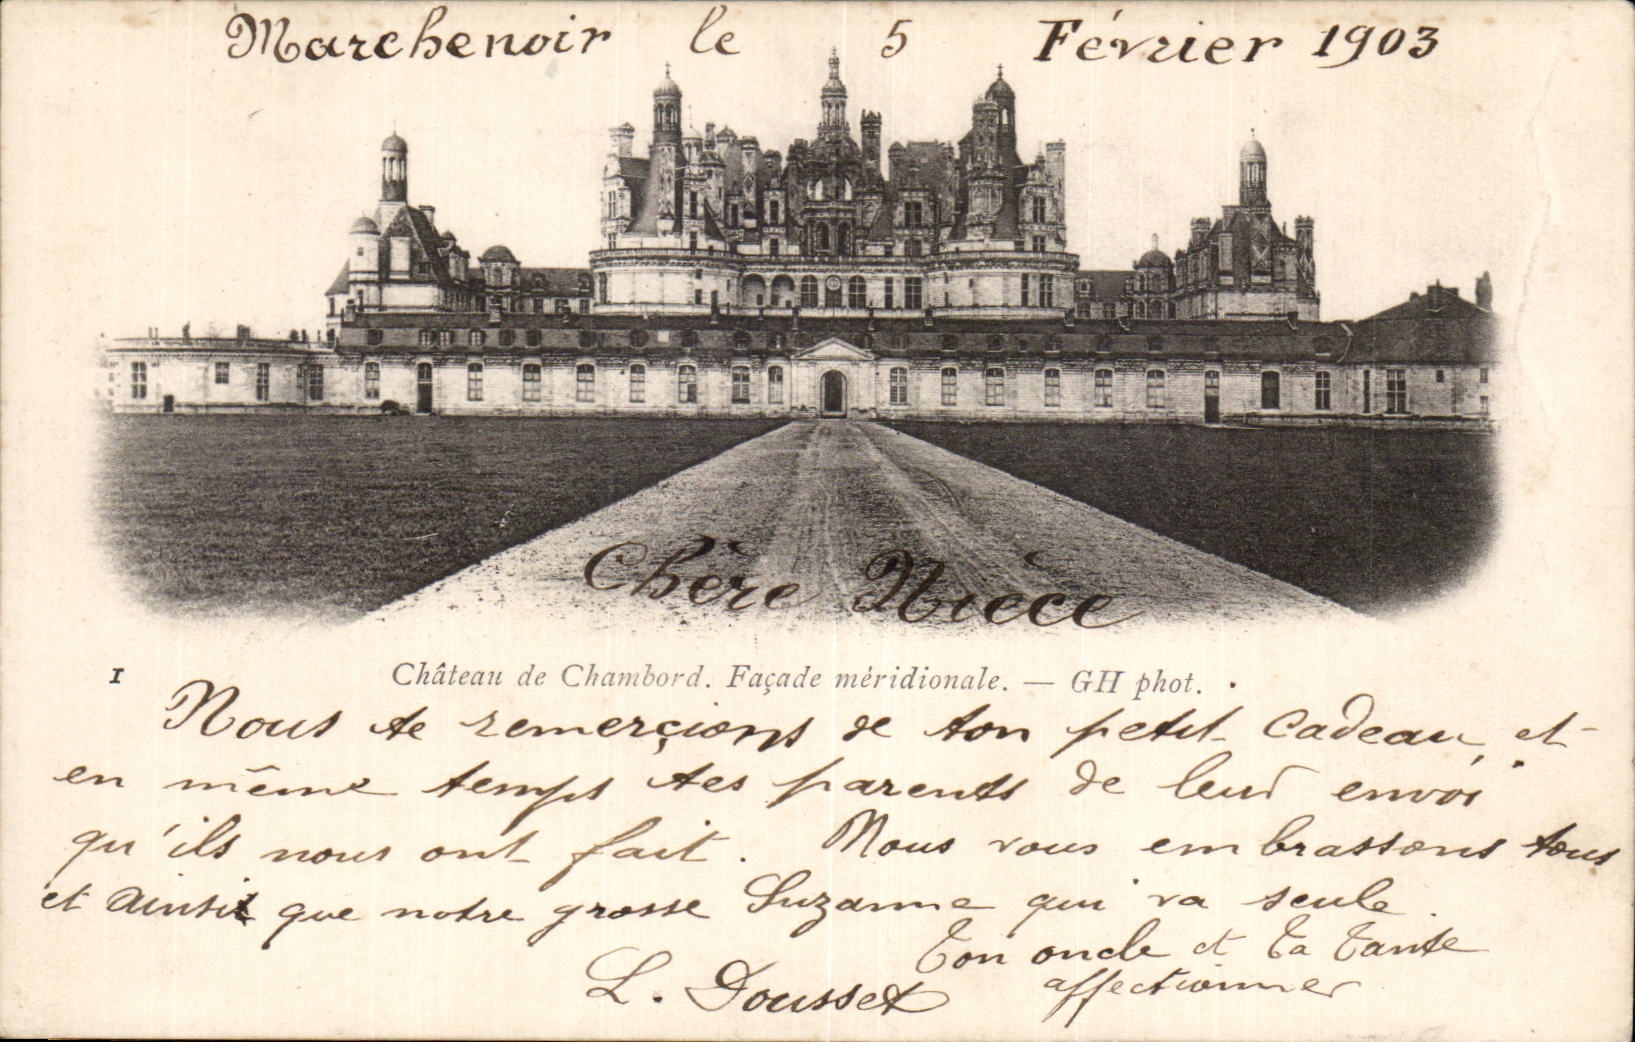 Marchenoir le 5 Février 1903
Chère Nièce
1 Château de Chambord. Façade méridionale. — GH phot.
Nous te remerçions de ton petit cadeau, et
en même temps tes parents de leur envoi
qu'ils nous ont fait. Nous vous embrassons tous
et ainsi que notre grosse Suzanne qui va seule.
Ton oncle et ta tante
affectionner
L. Dousset